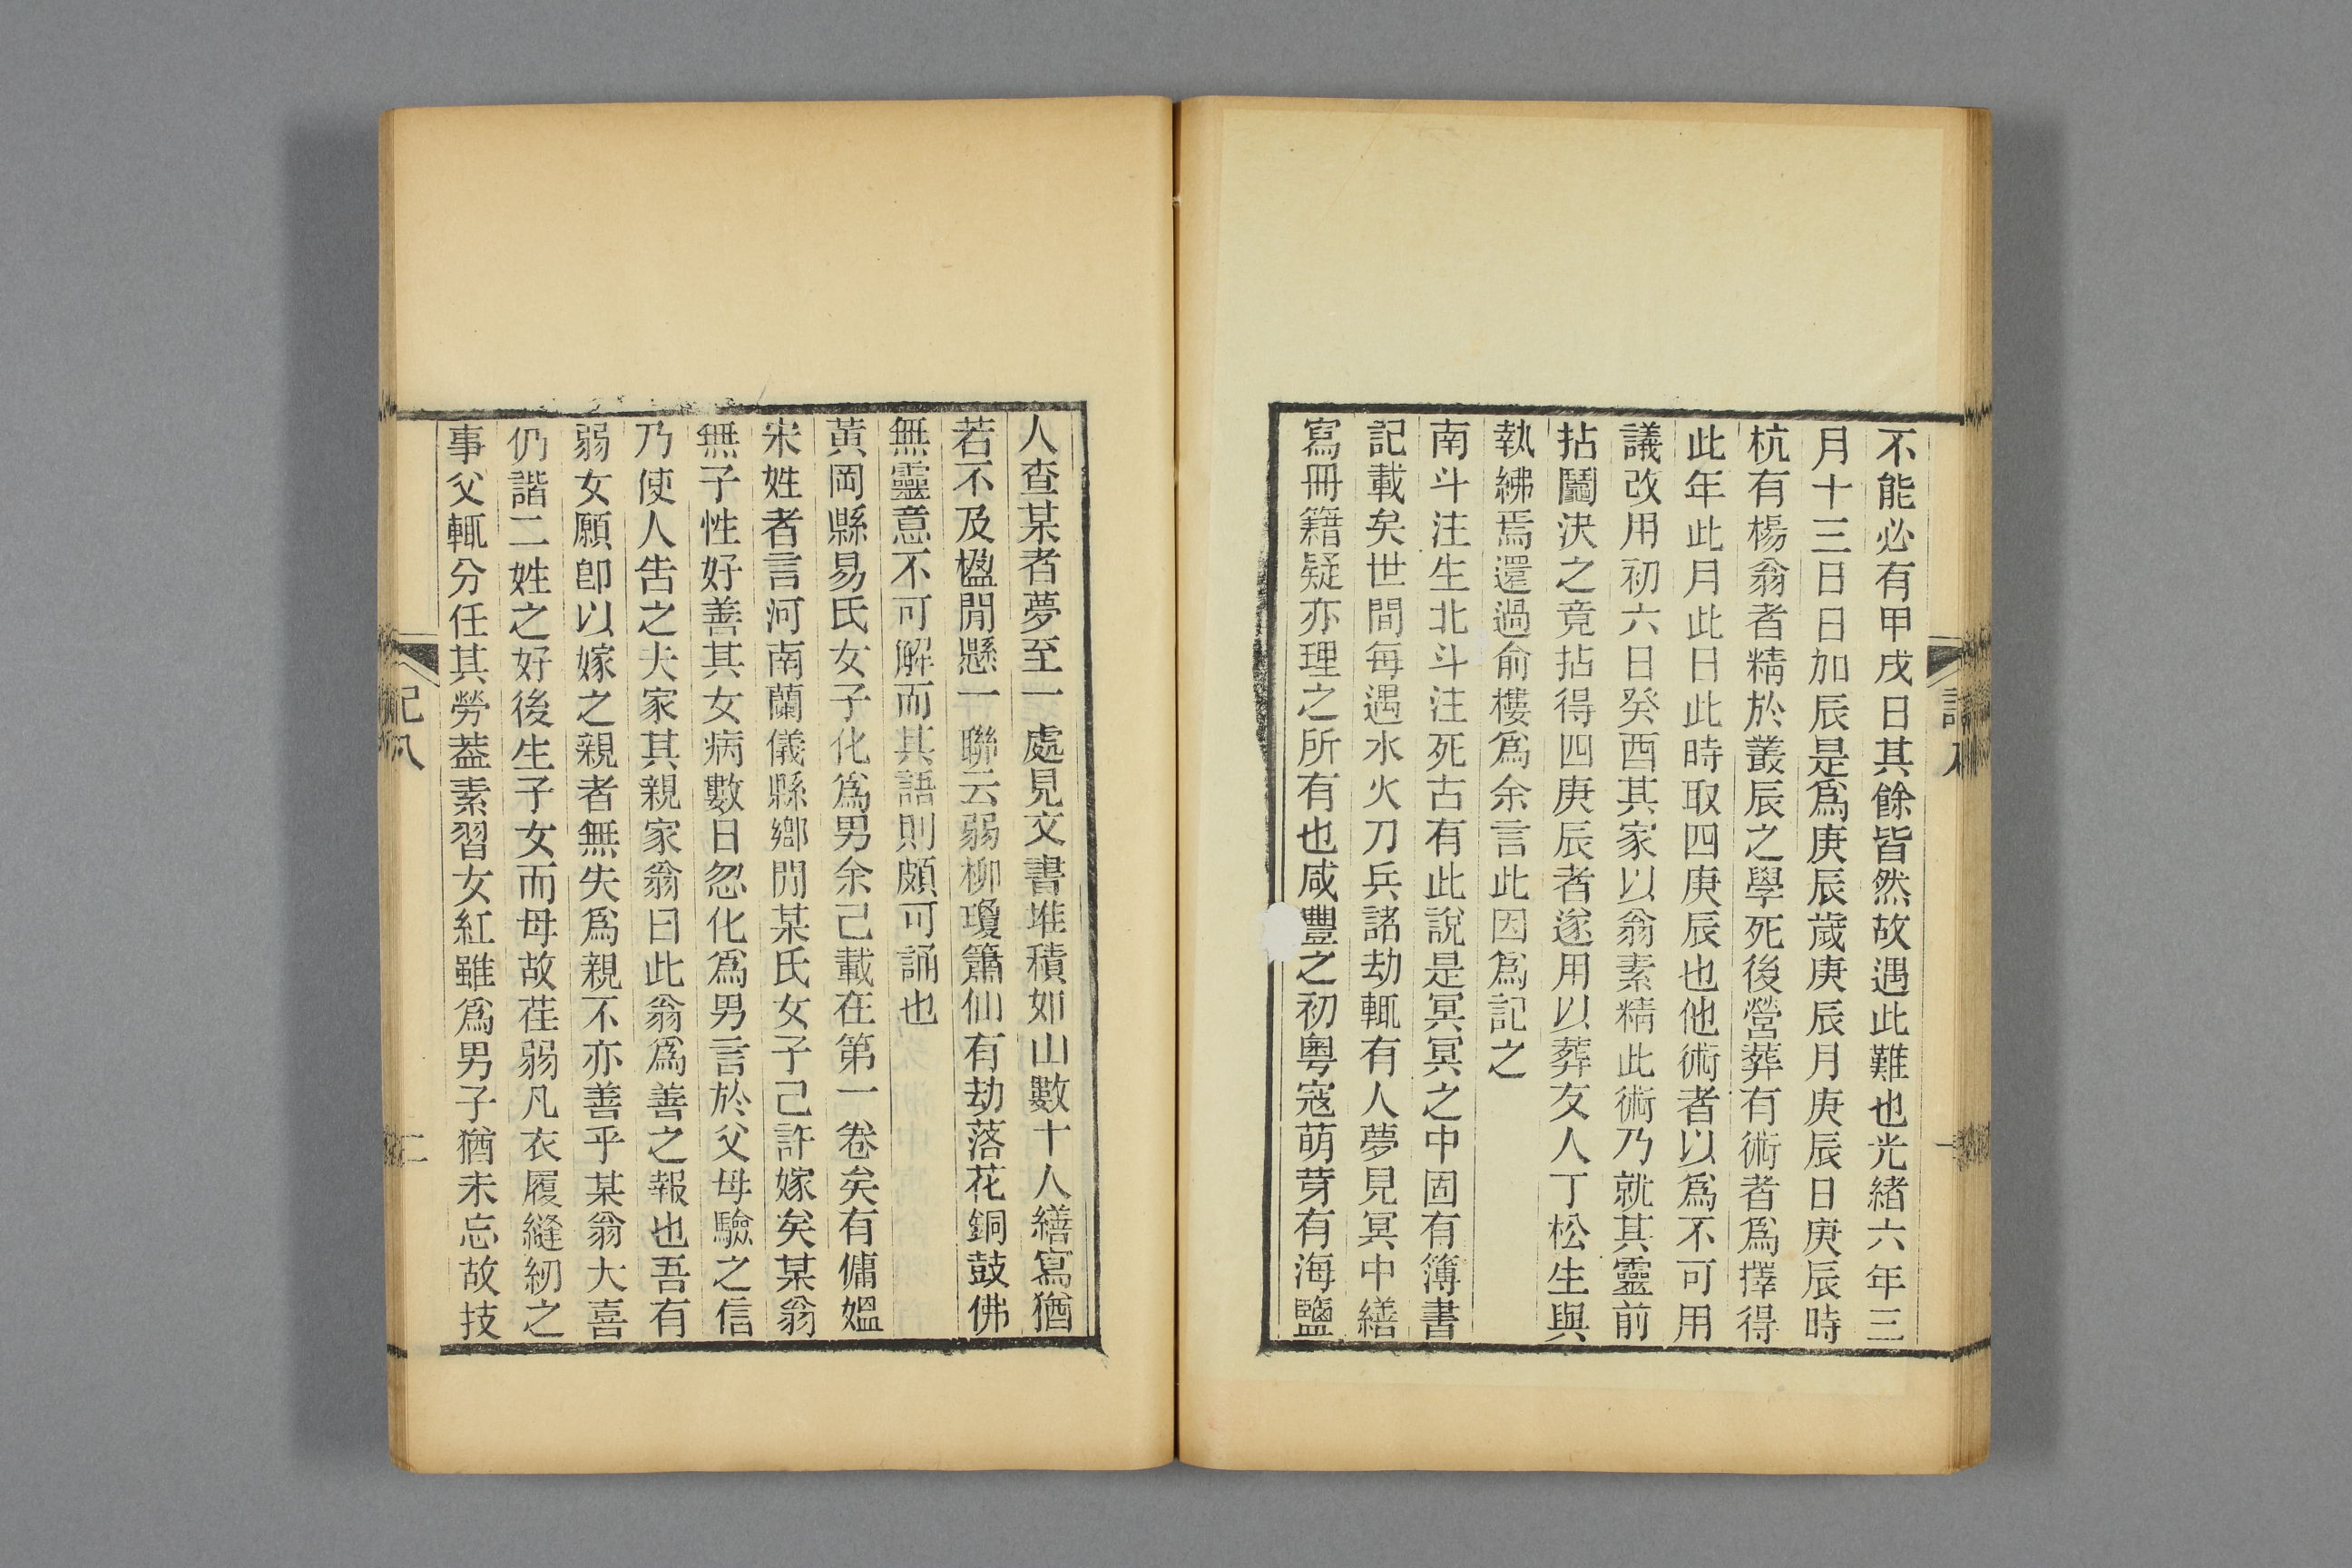 不能必有甲戌日其餘皆然故遇此難也光緒六年三
月十三日日加辰是爲庚辰歲庚辰月庚辰日庚辰時
杭有楊翁者精於叢辰之學死後營葬有術者爲擇得
此年此月此日此時取四庚辰也他術者以爲不可用
議改用初六日癸酉其家以翁素精此術乃就其靈前
拈鬮決之竟拈得四庚辰者遂用以葬友人丁松生與
執紼焉還過俞樓爲余言此因爲記之
南斗注生北斗注死古有此說是冥冥之中固有簿書
記載矣世間每遇水火刀兵諸劫輒有人夢見冥中繕
寫冊籍疑亦理之所有也咸豐之初粵寇萌芽有海鹽
人查某者夢至一處見文書堆積如山數十人繕寫猶
若不及楹閒懸一聯云弱柳瓊簫仙有劫落花銅鼓佛
無靈意不可解而其語則頗可誦也
黃岡縣易氏女子化爲男余己載在第一卷矣有傭媼
宋姓者言河南蘭儀縣鄉閒某氏女子己許嫁矣某翁
無子性好善其女病數日忽化爲男言於父母驗之信
乃使人告之夫家其親家翁曰此翁爲善之報也吾有
弱女願卽以嫁之親者無失爲親不亦善乎某翁大喜
仍諧二姓之好後生子女而母故荏弱凡衣履縫紉之
事父輒分任其勞葢素習女紅雖爲男子猶未忘故技
記八
二